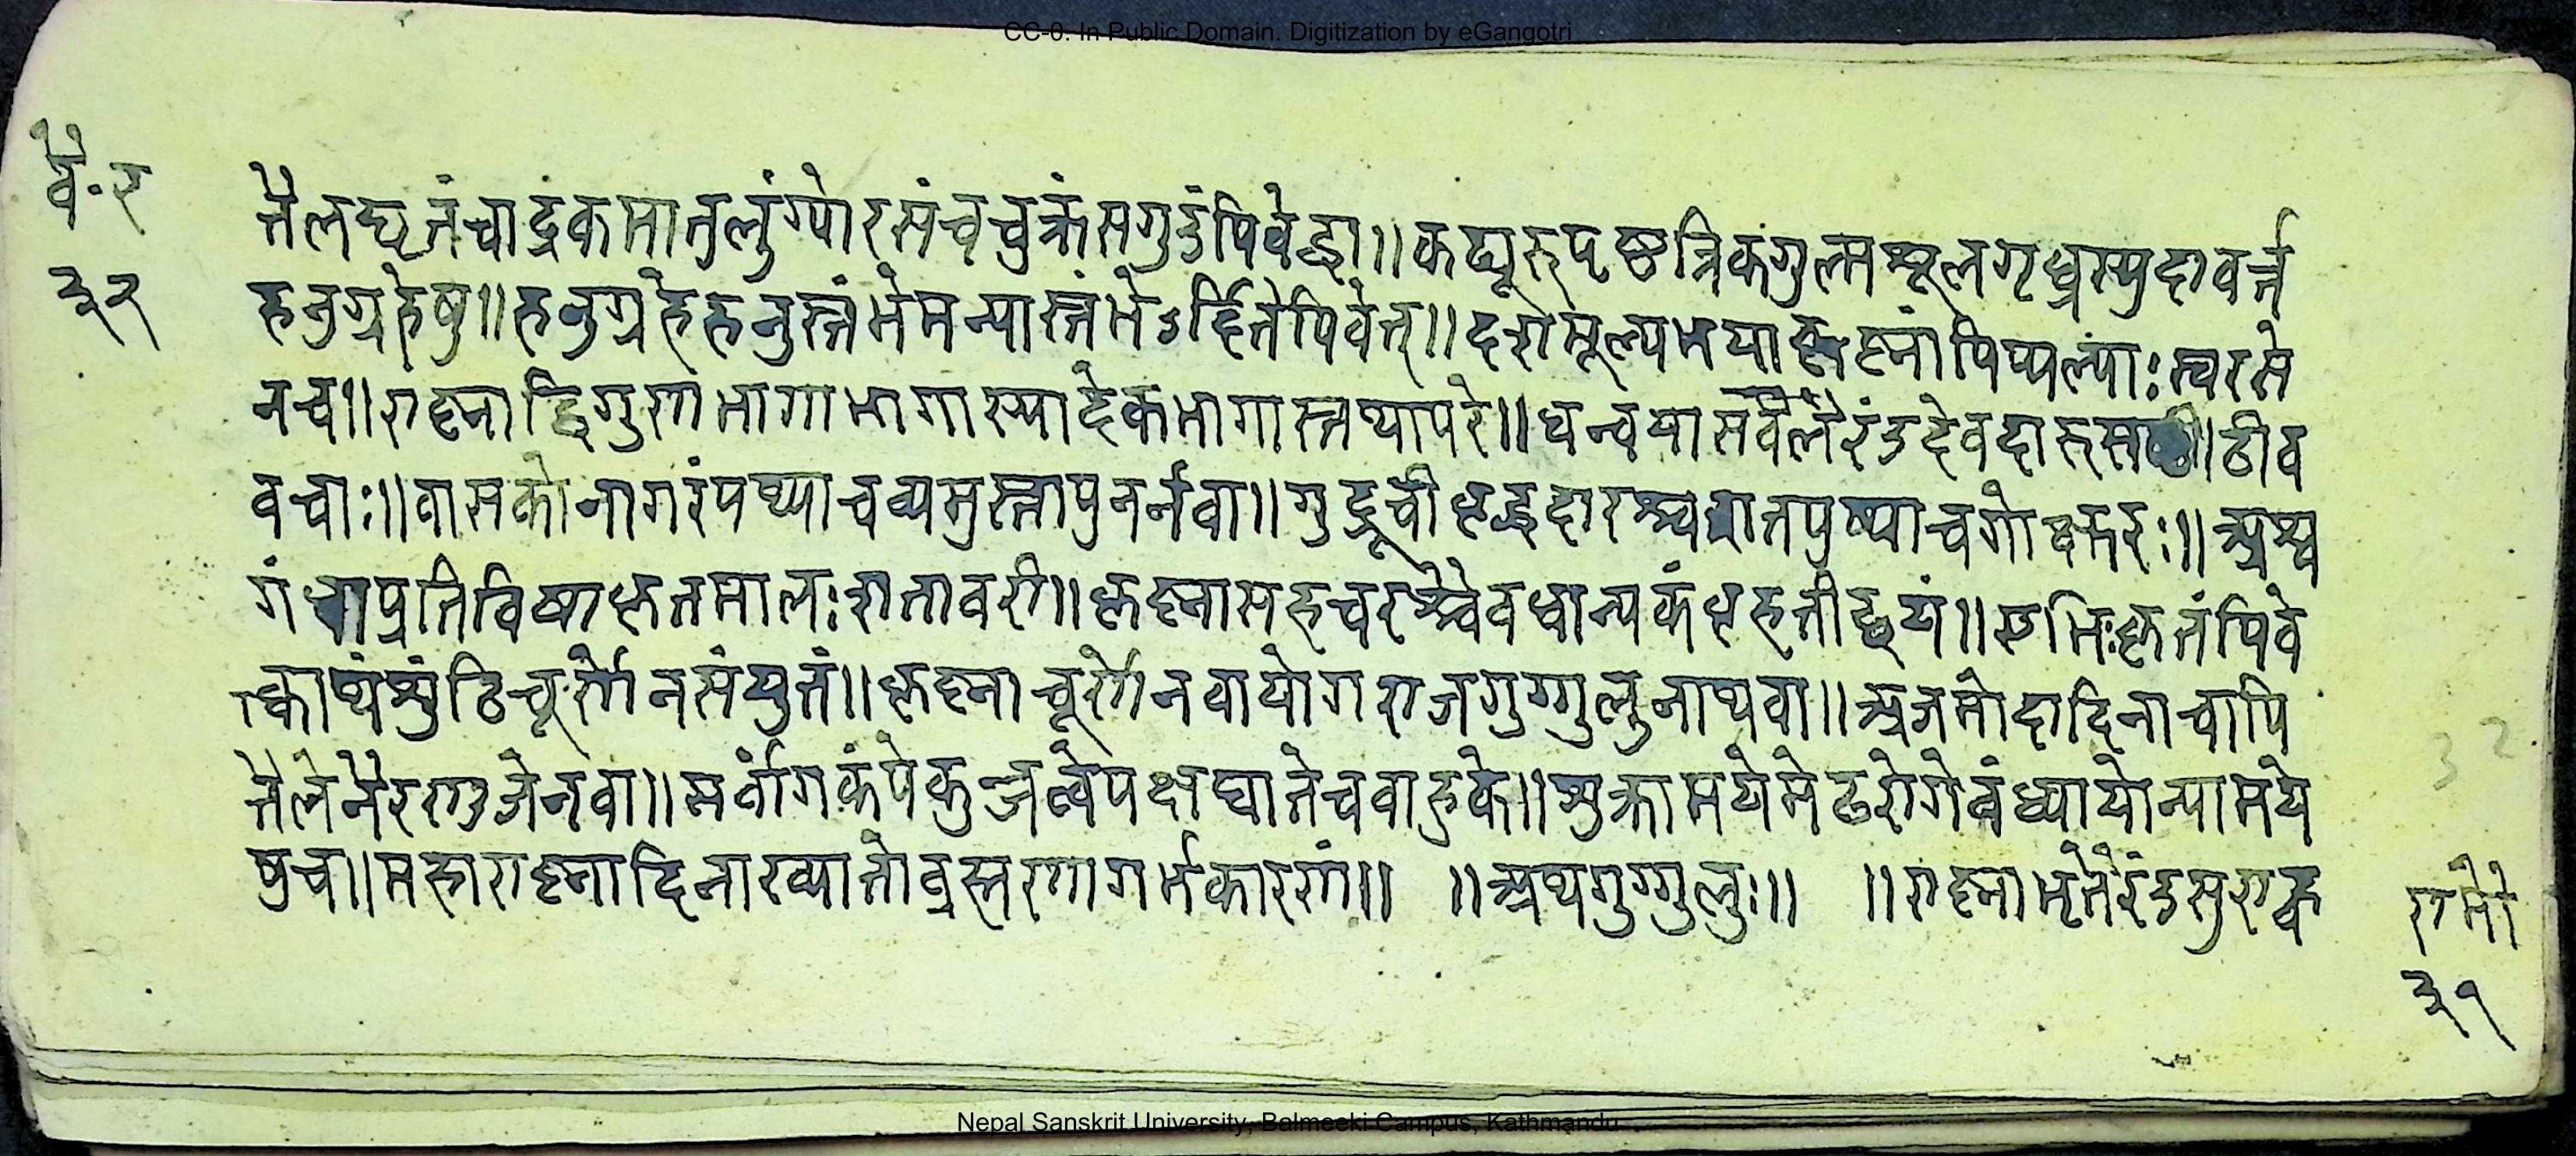 CC-0. In Public Domain. Digitization by eGangotri
वै॰र
३२
तैलघृतंचार्द्रकमातुलुंग्योरसंचचुक्रंसगुडंपिवेद्वा॥कट्यूरुपृष्ठत्रिकगुल्मशूलगृध्रस्युदावर्त्त
हनुग्रहेषु॥हनुग्रहेहनुस्तंभेमन्यास्तंभेऽर्दितेपिवेत्॥दशमूल्यमया पिप्पल्याःस्वरसे
नच॥रास्नाद्विगुणभागाभागास्यादेकभागास्तथापरे॥धन्वयासवलैरंडदेवदारु ठीव
वचाः॥वासकोनागरंपथ्याचव्यमुस्तापुनर्नवा॥गुडूचीवृद्धदारश्चशतपुष्पाचगोक्षुरः॥अश्व
गंधाप्रतिविषाकृतमालःशतावरी॥कृष्णासहचरश्चैवधान्यकंवृहतीद्वयं॥एभिःकृतंपिवे
त्क्वाथंशुंठिचूर्णेनसंयुतं॥कृष्णाचूर्णेनवायोगराजगुग्गुलुनाथवा॥अजमोदादिनाचापि
तैलेनैरण्डजेनवा॥सर्वांगकंपेकुब्जत्वेपक्षघातेचवाहुके॥शुक्रामयेमेढरोगेवंध्यायोन्यामये
षुच॥महारास्नादिनाख्यातोव्रह्मणागर्भकारणं॥ ॥अथगुग्गुलुः॥ ॥रास्नामृतैरंडसुराह्व
32
रामो
३१
Nepal Sanskrit University, Balmeeki Campus, Kathmandu